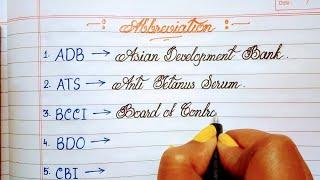 Abbreviation :
1. ADB → Asian Development Bank.
2. ATS → Anti Tetanus Serum.
3. BCCI → Board of Contro
4. BDO →
5. CBI →